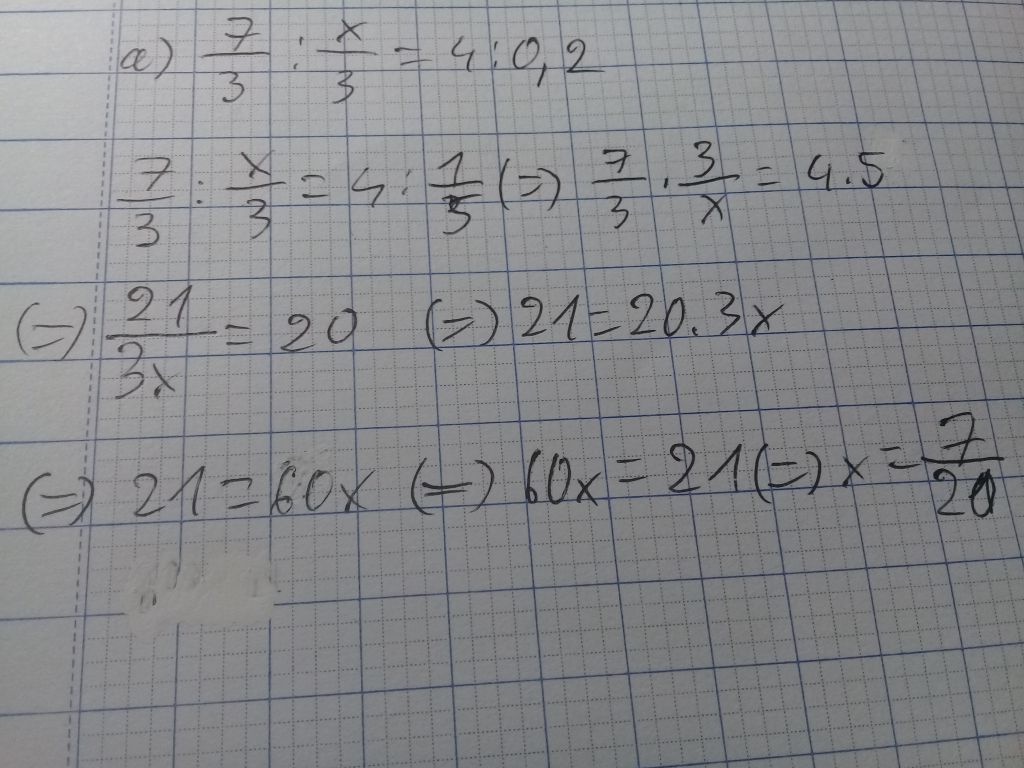 a) 7/3 : x/3 = 4 : 0,2
7/3 : x/3 = 4 : 1/5 (=) 7/3 . 3/x = 4.5
(=) 21/3x = 20 (=) 21 = 20.3x
(=) 21 = 60x (=) 60x = 21 (=) x = 7/20